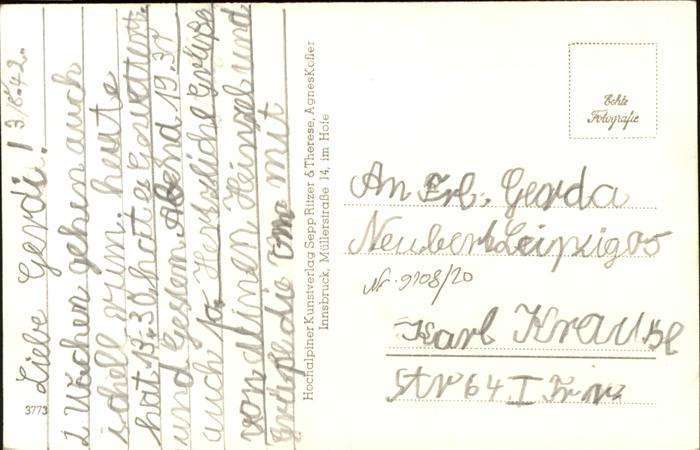 3/8.42.
Liebe Gerdi!
2 Wochen gehen auch
schell rum. heute
hat 13.30 hat a Gewitter
und Gestern Abend 19.30
auch Herzliche Grüße
von deinen Heinzel und
Grüße die Oma mit
3773
Hochalpiner Kunstverlag Sepp Ritzer & Therese, Agnes Kofler
Innsbruck, Müllerstraße 14, im Hofe
Echte
Fotografie
An Gerda
Neubert Leipzig O5
Nr. 9108/20
Karl Krause
Str 64 I